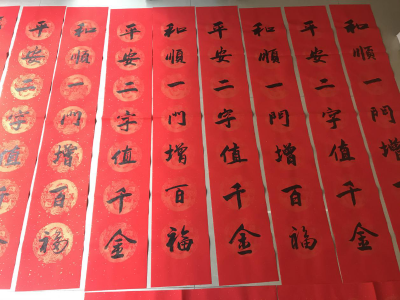 和順一門增
平安二字值千金
和順一門增百福
平安二字值千金
和順一門增百福
平安二字值千金
和順一門增百福
平安二字值千金